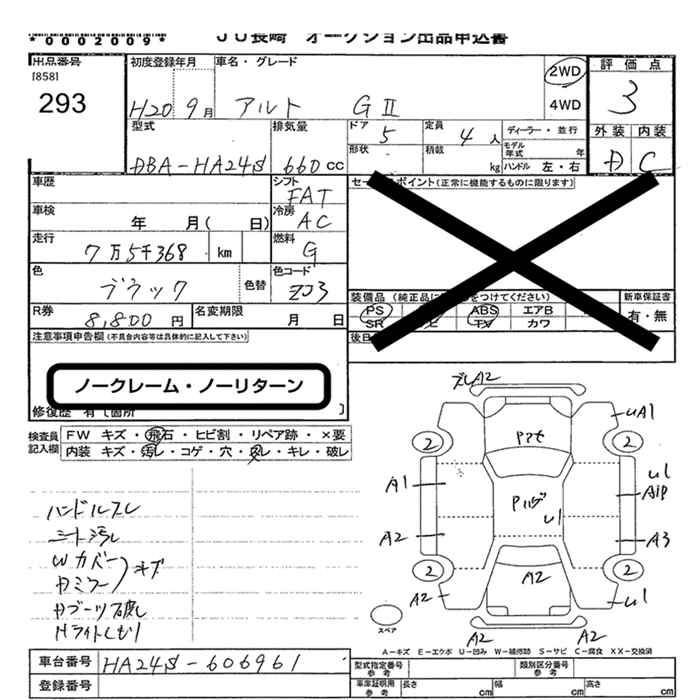 *0002009*
JU長崎 オークション出品申込書
出品番号
[858]
293
初度登録年月
H20 9月
車名・グレード
アルト GⅡ
2WD
4WD
評価点
3
外装 内装
D C
型式
DBA-HA24S
排気量
660cc
ドア
5
形状
定員
4人
積載
kg
ディーラー・並行
モデル年式 年
ハンドル 左・右
車歴
シフト
FAT
車検
年 月( 日)
冷房
AC
走行
7万5千368 km
燃料
G
色
ブラック
色替
色コード
ZJ3
R券
8,800円
名変期限
月 日
セールスポイント(正常に機能するものに限ります)
装備品(純正品に をつけてください)
新車保証書
PS ABS エアB
有・無
SR TV カワ
後日
注意事項申告欄(不具合内容等は具体的に記入して下さい)
ノークレーム・ノーリターン
修復歴 有[箇所 ]
検査員記入欄
FW キズ・飛石・ヒビ割・リペア跡・×要
内装 キズ・汚れ・コゲ・穴・皮レ・キレ・破レ
ハンドルスレ
シート汚レ
Wカバー
Dミラー
キズ
Dブーツ破レ
Hライトくもり
ズレA2
UA1
Pアセ
2
2
A1
U1
A1P
Pハゲ
U1
A2
A3
2
2
A2
A2
U1
スペア
A2
A2
A-キズ E-エクボ U-凹み W-補修跡 S-サビ C-腐食 XX-交換済
車台番号
HA24S-606961
登録番号
型式指定番号 参考
類別区分番号 参考
車庫証明用 参考
長さ cm
幅 cm
高さ cm